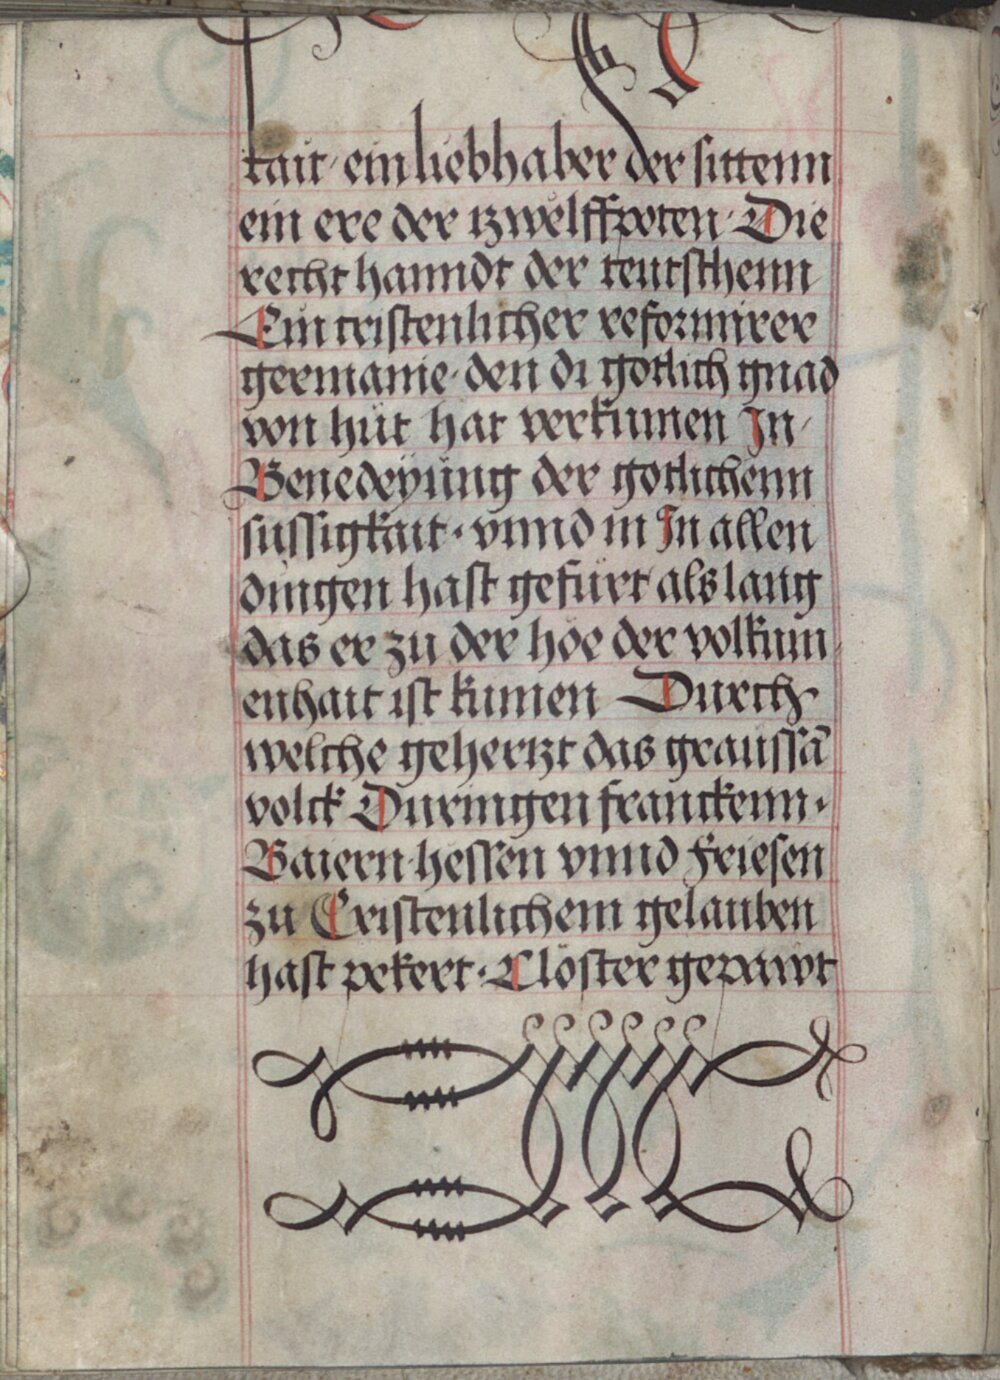 kait · ein liebhaber der sittenn
ein ere der tzwelffpoten · Die
recht hanndt der teutschenn
Ein cristenlicher reformirer
germanie · den di gotlich gnad
von hut hat verkumen In
Benedeyung der gotlichenn
sussigkait · vnnd in In allen
dingen hast gefurt als lang
das er zu der hoe der volkum
enhait ist kumen Durch
welche gehertzt das graussā
volck Duringen franckenn ·
Baiern · hessen vnnd friesen
zu Cristenlichem gelauben
hast pekert · Closter gepawt